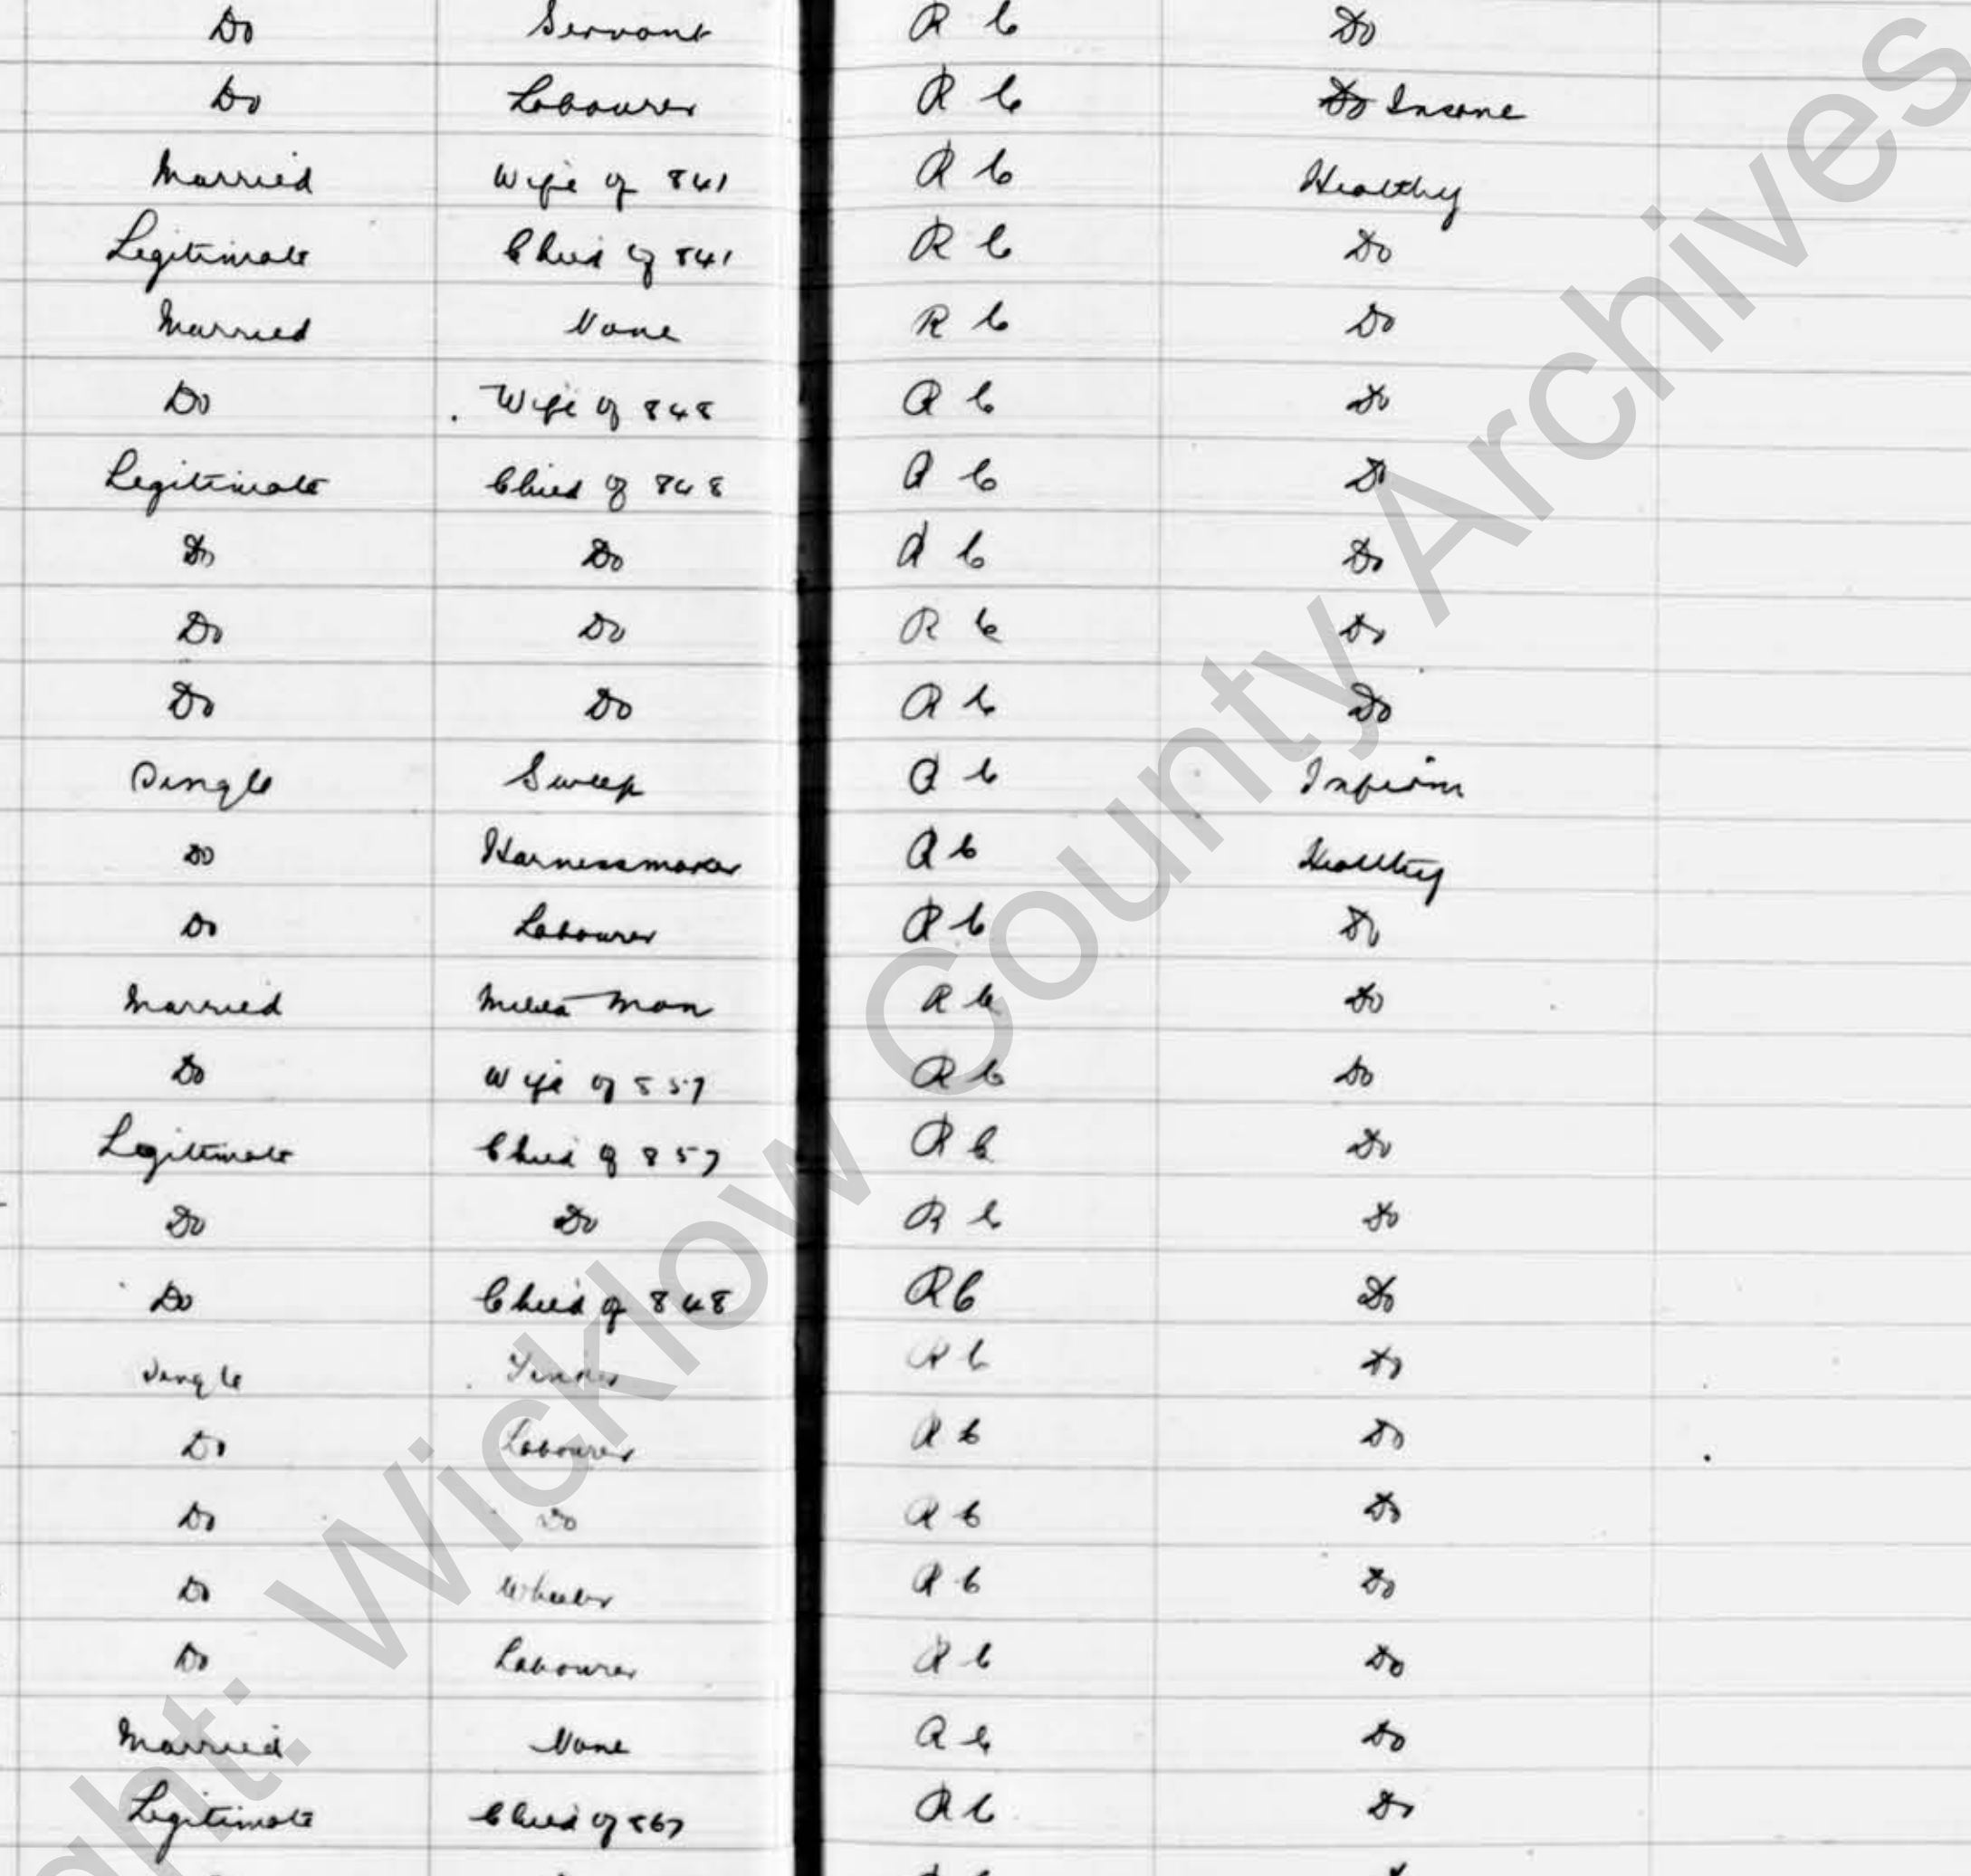 Do Servant R C Do
Do Labourer R C Do Insane
Married Wife of 841 R C Healthy
Legitimate Child of 841 R C Do
Married None R C Do
Do Wife of 848 R C Do
Legitimate Child of 848 R C Do
Do Do R C Do
Do Do R C Do
Do Do R C Do
Single Sweep R C Infirm
Do Harnessmaker R C Healthy
Do Labourer R C Do
Married Man R C Do
Do Wife of 857 R C Do
Legitimate Child of 857 R C Do
Do Do R C Do
Do Child of 848 R C Do
Single R C Do
Do Labourer R C Do
Do Do R C Do
Do Wheeler R C Do
Do Labourer R C Do
Married None R C Do
Legitimate Child of 867 R C Do
ght: Wicklow County Archives